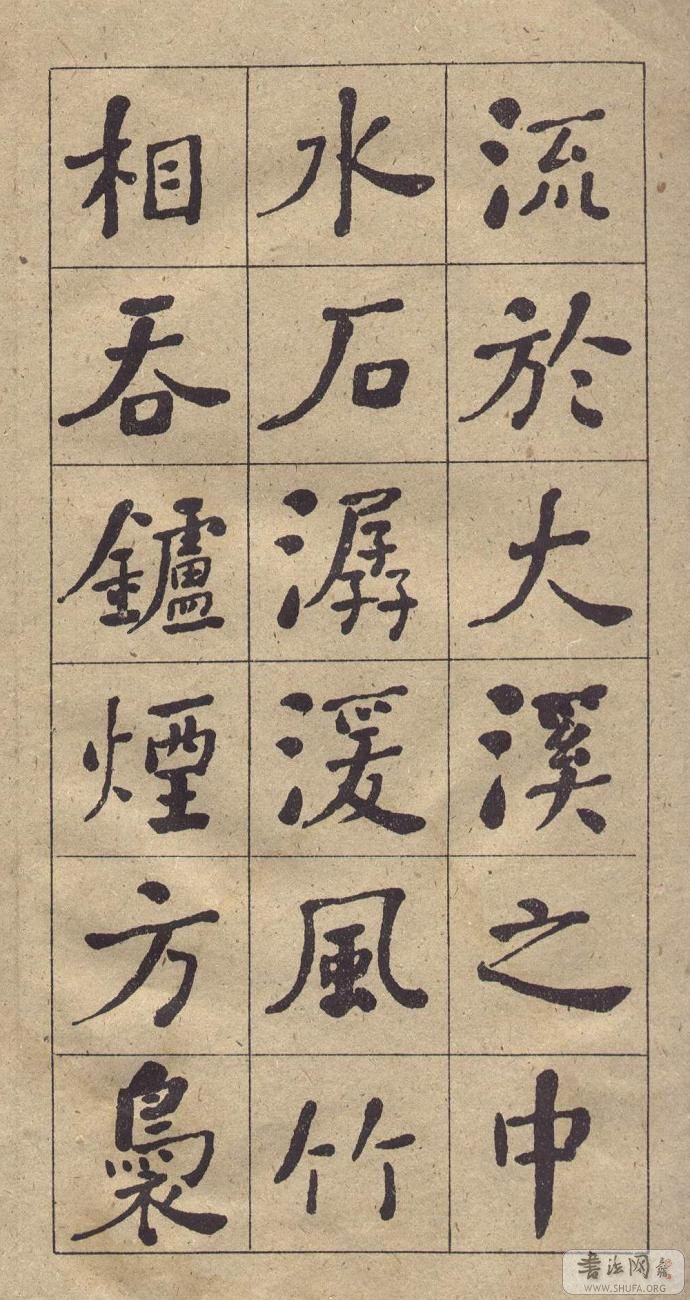 流於大溪之中
水石潺湲風竹
相吞鑪煙方裊
書法网
WWW.SHUFA.ORG